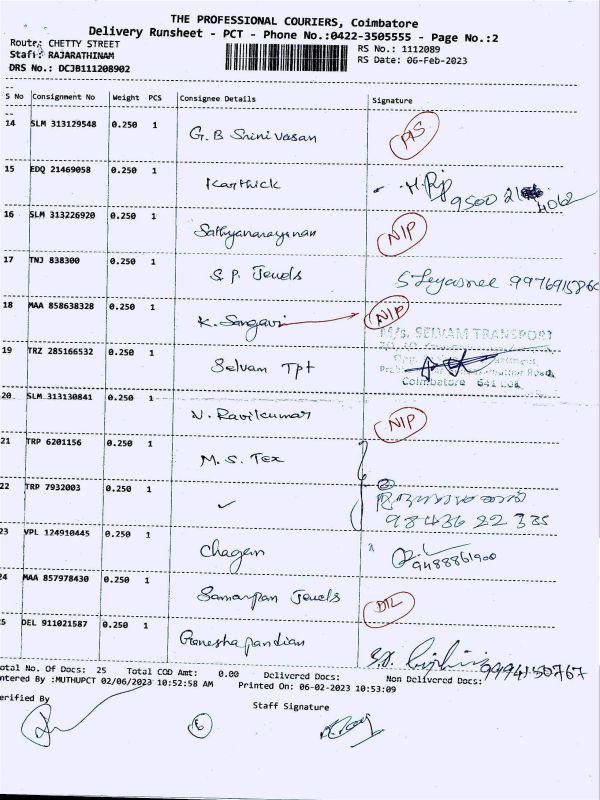 THE PROFESSIONAL COURIERS, Coimbatore
Delivery Runsheet - PCT - Phone No.:0422-3505555 - Page No.:2
Route: CHETTY STREET RS No.: 1112089
Staff: RAJARATHINAM RS Date: 06-Feb-2023
DRS No.: DCJB111208902
S No Consignment No Weight PCS Consignee Details Signature
14 SLM 313129548 0.250 1 G.B Srinivasan
15 EDQ 21469058 0.250 1 Karthick
16 SLM 313226920 0.250 1 Sathyanarayanan NIP
17 TNJ 838300 0.250 1 S.P. Jewels
18 MAA 858638328 0.250 1 K. Sangavi NIP
M/s. SELVAM TRANSPORT
19 TRZ 285166532 0.250 1 Selvam Tpt
Coimbatore
20 SLM 313130841 0.250 1 N. Ravikumar NIP
21 TRP 6201156 0.250 1 M.S. Tex
22 TRP 7932003 0.250 1 ✓
98436 22 335
23 VPL 124910445 0.250 1 Chagan
9488861900
24 MAA 857978430 0.250 1 Samarpan Jewels DIL
25 DEL 911021587 0.250 1 Ganeshapandian
9994150767
Total No. Of Docs: 25 Total COD Amt: 0.00 Delivered Docs: Non Delivered Docs:
Entered By :MUTHUPCT 02/06/2023 10:52:58 AM Printed On: 06-02-2023 10:53:09
Verified By Staff Signature
6